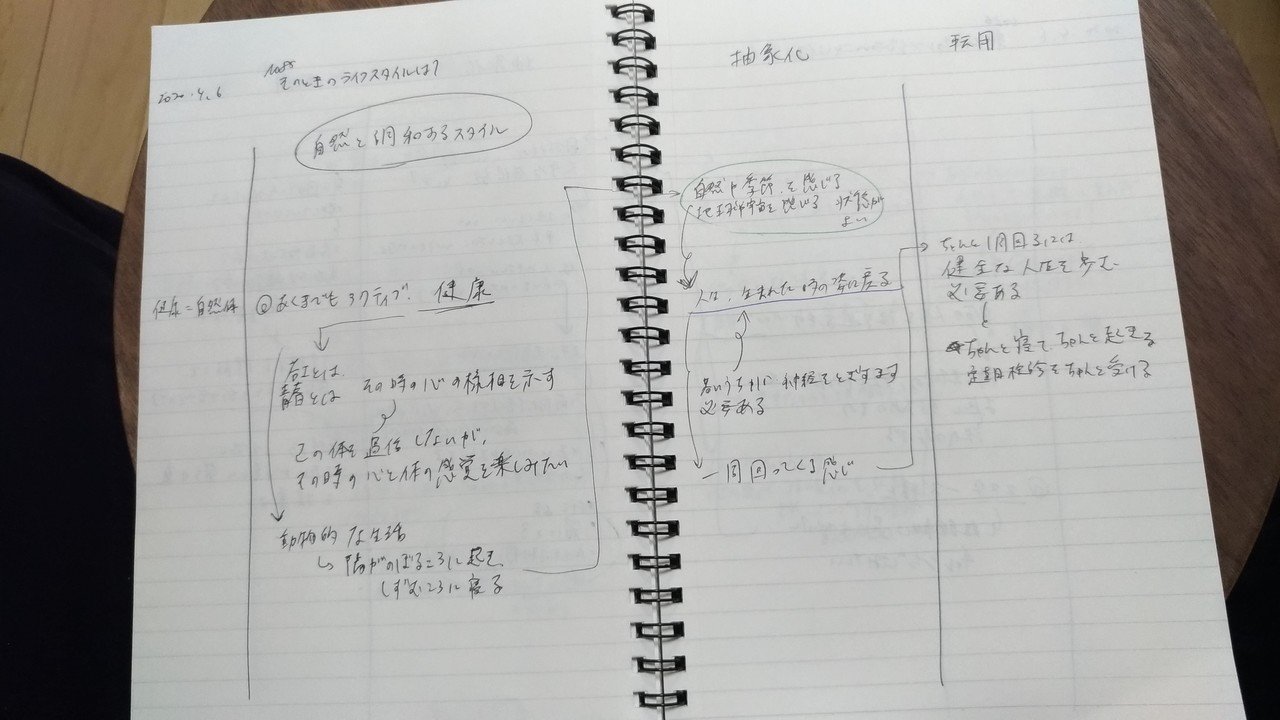 2020.4.6
そのときのライフスタイルは?
自然と調和あるスタイル
健康=自然体
あくまでもアクティブ. 健康
とは
とは その時の心の様相を示す
この体を過信しないが、
その時の心と体の感覚を楽しみたい
動物的な生活
陽がのぼるころに起きて、
しずむころに寝る
抽象化
自然や季節を感じる
地球や宇宙を感じる 状態が
よい
人は、生まれた時の姿に戻る
若いうちに 神経をとぎすます
必要ある
一周回ってくる感じ
転用
ちゃんと1周回るには
健全な人生を歩む
必要ある
ちゃんと寝て、ちゃんと起きる
定期検診をちゃんと受ける